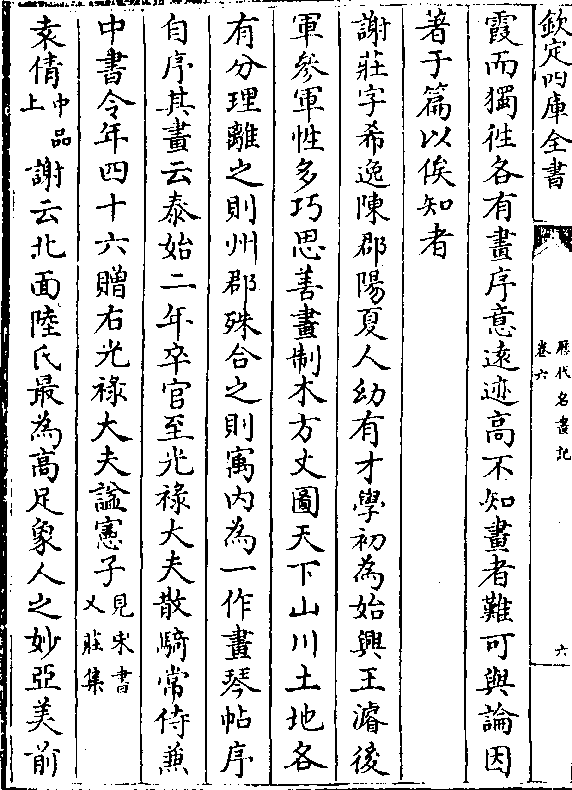 欽定四庫全書
歷代名畫記
卷六
六
霞而獨往各有畫序意遠迹高不知畫者難可與論因
著于篇以俟知者
謝莊字希逸陳郡陽夏人幼有才學初為始興王濬後
軍參軍性多巧思善畫制木方丈圖天下山川土地各
有分理離之則州郡殊合之則寓内為一作畫琴帖序
自序其畫云泰始二年卒官至光祿大夫散騎常侍兼
中書令年四十六贈右光祿大夫諡憲子見宋書乂莊集
袁倩中品上謝云北面陸氏最為高足象人之妙亞美前